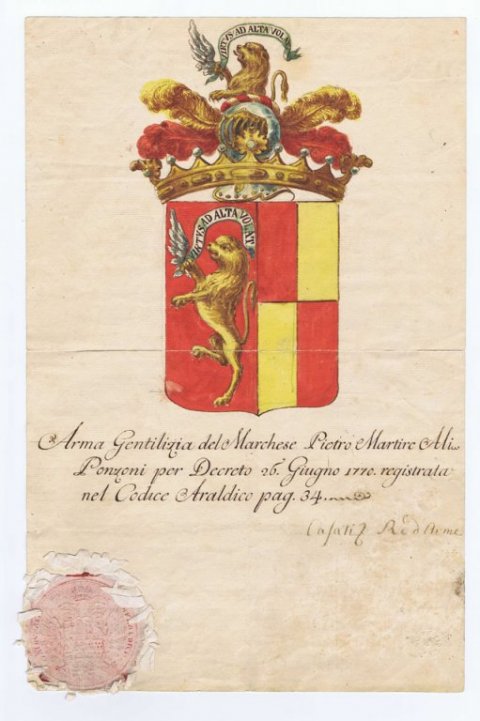 VIRTUS AD ALTA VOL
VIRTUS AD ALTA VOLAT
Arma Gentilizia del Marchese Pietro Martire Ali
Ponzoni per Decreto 26. Giugno 1770. registrata
nel Codice Araldico pag. 34.
Casati Re d'Arme